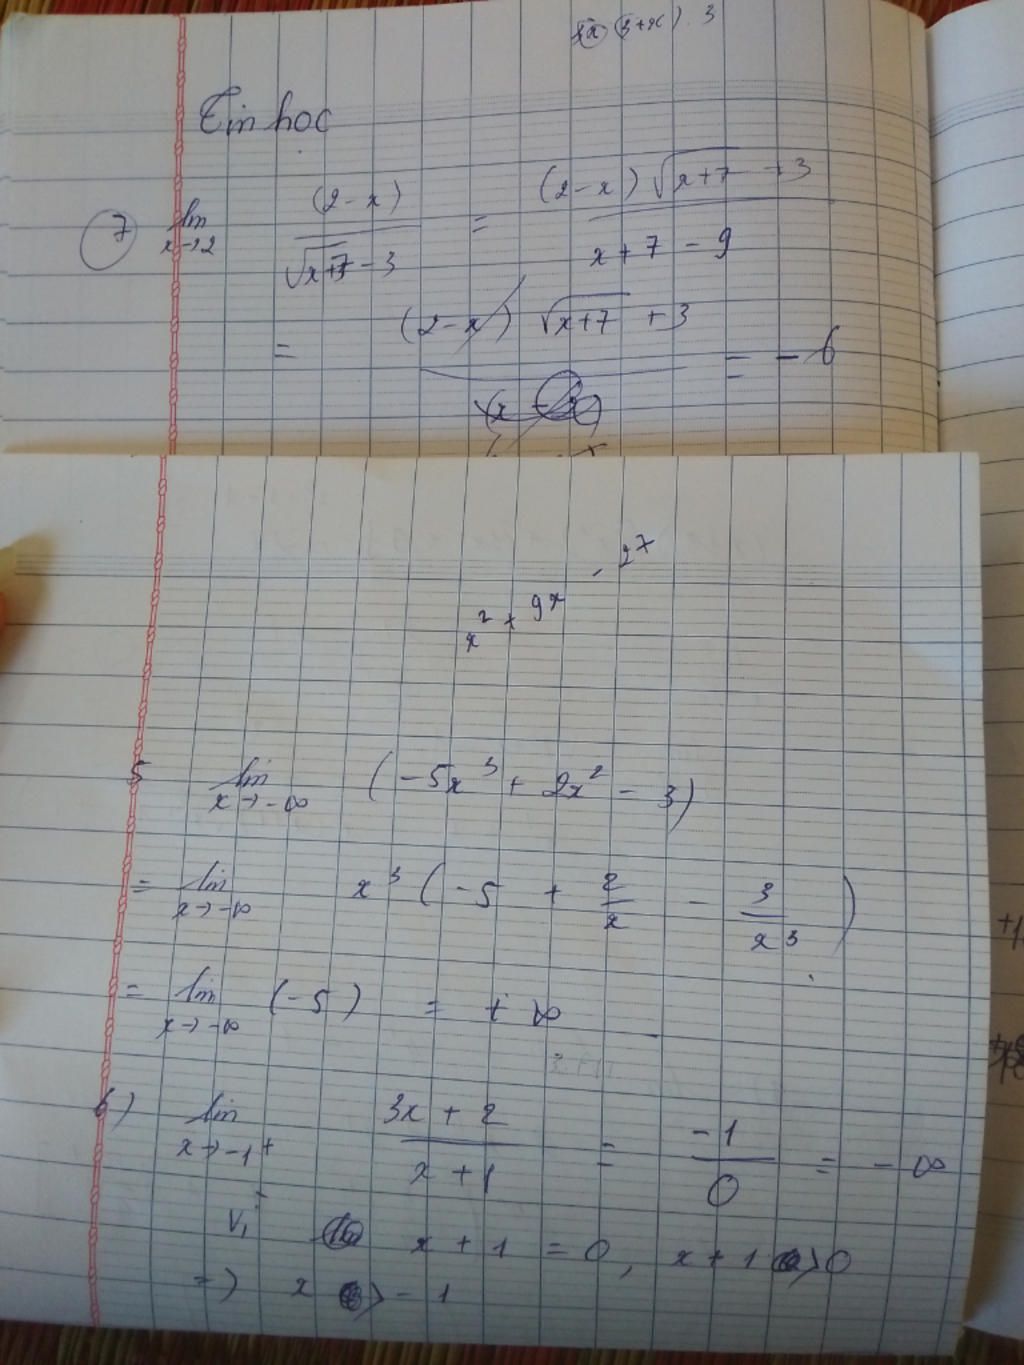 (3+x).3
Tin hoc
7 lim x→2 (2-x)/(√x+7 - 3) = (2-x)√x+7 +3/(x+7-9)
= (2-x) √x+7 +3 / (x-2) = -6
x² + 9x - 27
5 lim x→-∞ (-5x³ + 2x² - 3)
= lim x→-∞ x³(-5 + 2/x - 3/x³)
= lim x→-∞ (-5) = +∞
6) lim x→-1+ (3x+2)/(x+1) = -1/0 = -∞
Vì x+1 = 0, x+1 > 0
=) x > -1